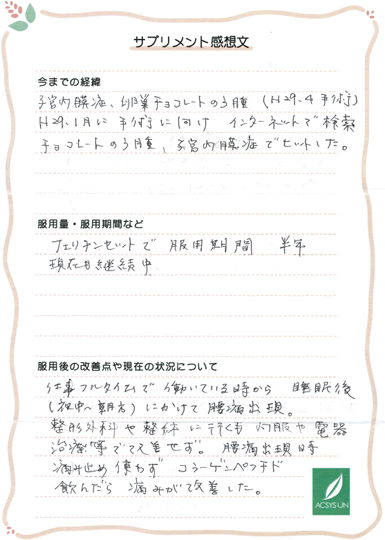 サプリメント感想文
今までの経緯
子宮内膜症、卵巣チョコレートのう腫 (H29.4 手術)
H29.1月に手術に向け インターネットで検索
チョコレートのう腫、子宮内膜症でヒットした。
服用量・服用期間など
フェリチンセットで 服用期間 半年
現在も継続中
服用後の改善点や現在の状況について
仕事フルタイムで働いている時から 睡眠後
(夜中〜朝方)にかけて腰痛出現。
整形外科や整体に行くも 内服や電器
治療等で改善せず。 腰痛出現時
痛み止め使わず コラーゲンペプチド
飲んだら 痛みが改善した。
ACSYSUN